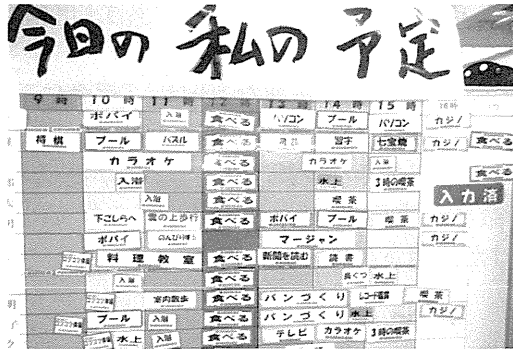 今日の 私の 予定
9時 10時 11時 12時 13時 14時 15時 16時
ポパイ 入浴 食べる パソコン プール パソコン カジノ
将棋 プール パズル 食べる 習字 七宝焼 カジノ 食べる
カラオケ 食べる カラオケ 入浴 食べる
入浴 食べる 水上 3時の喫茶
入力済
入浴 食べる 喫茶
下ごしらへ 雲の上歩行 食べる ポパイ プール 喫茶 カジノ
ポパイ マージャン カジノ
料理教室 食べる 新聞を読む 読書
入浴 食べる 長ぐつ 水上
室内散歩 食べる パンづくり 喫茶
プール 入浴 食べる パンづくり 水上 カジノ
水上 入浴 食べる テレビ カラオケ 3時の喫茶